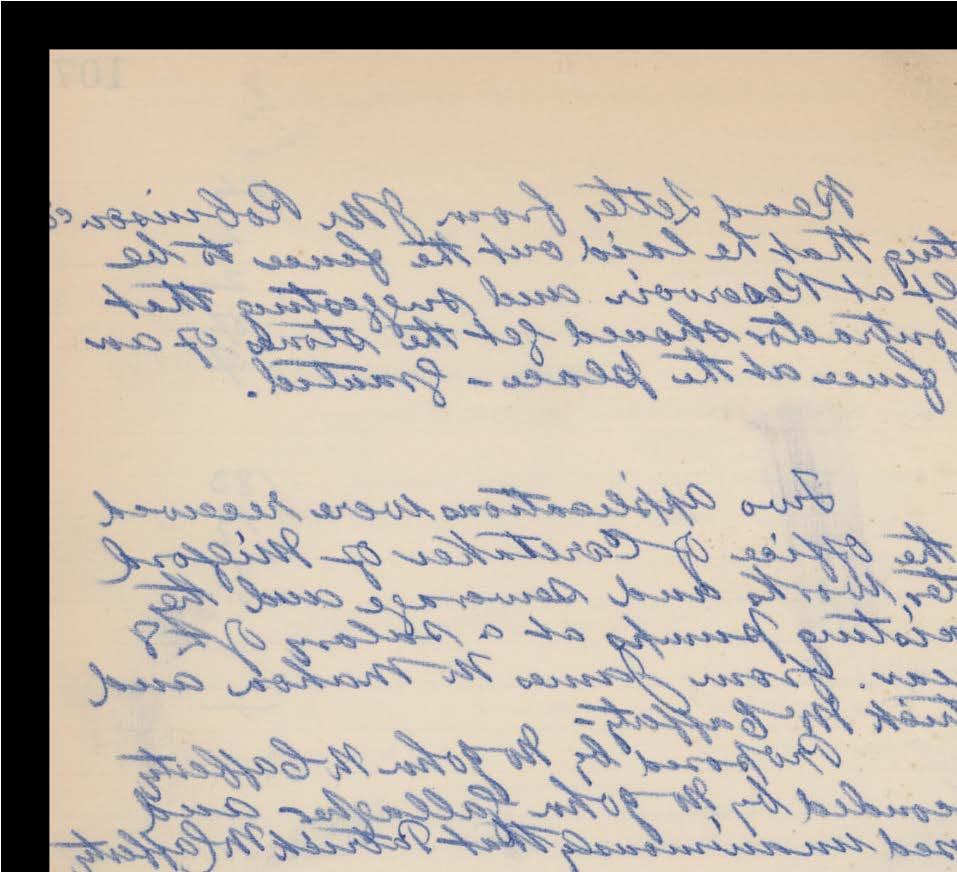 107
Read Letter from Mr Robinson
ting that he laid out the fence to be
lt at Reservoir and suggesting that
ontractor should get the stones of an
fence at the place - Granted.
Two applications were received
the office of Caretaker of Milford
ter Works and sewerage and the
xisting pumps at a salary of £8
ear. from James McMahon and
trick McCafferty-
Proposed by Mr John McCafferty
conded by Mr John Gallagher and
sed unanimously that Patrick McCafferty